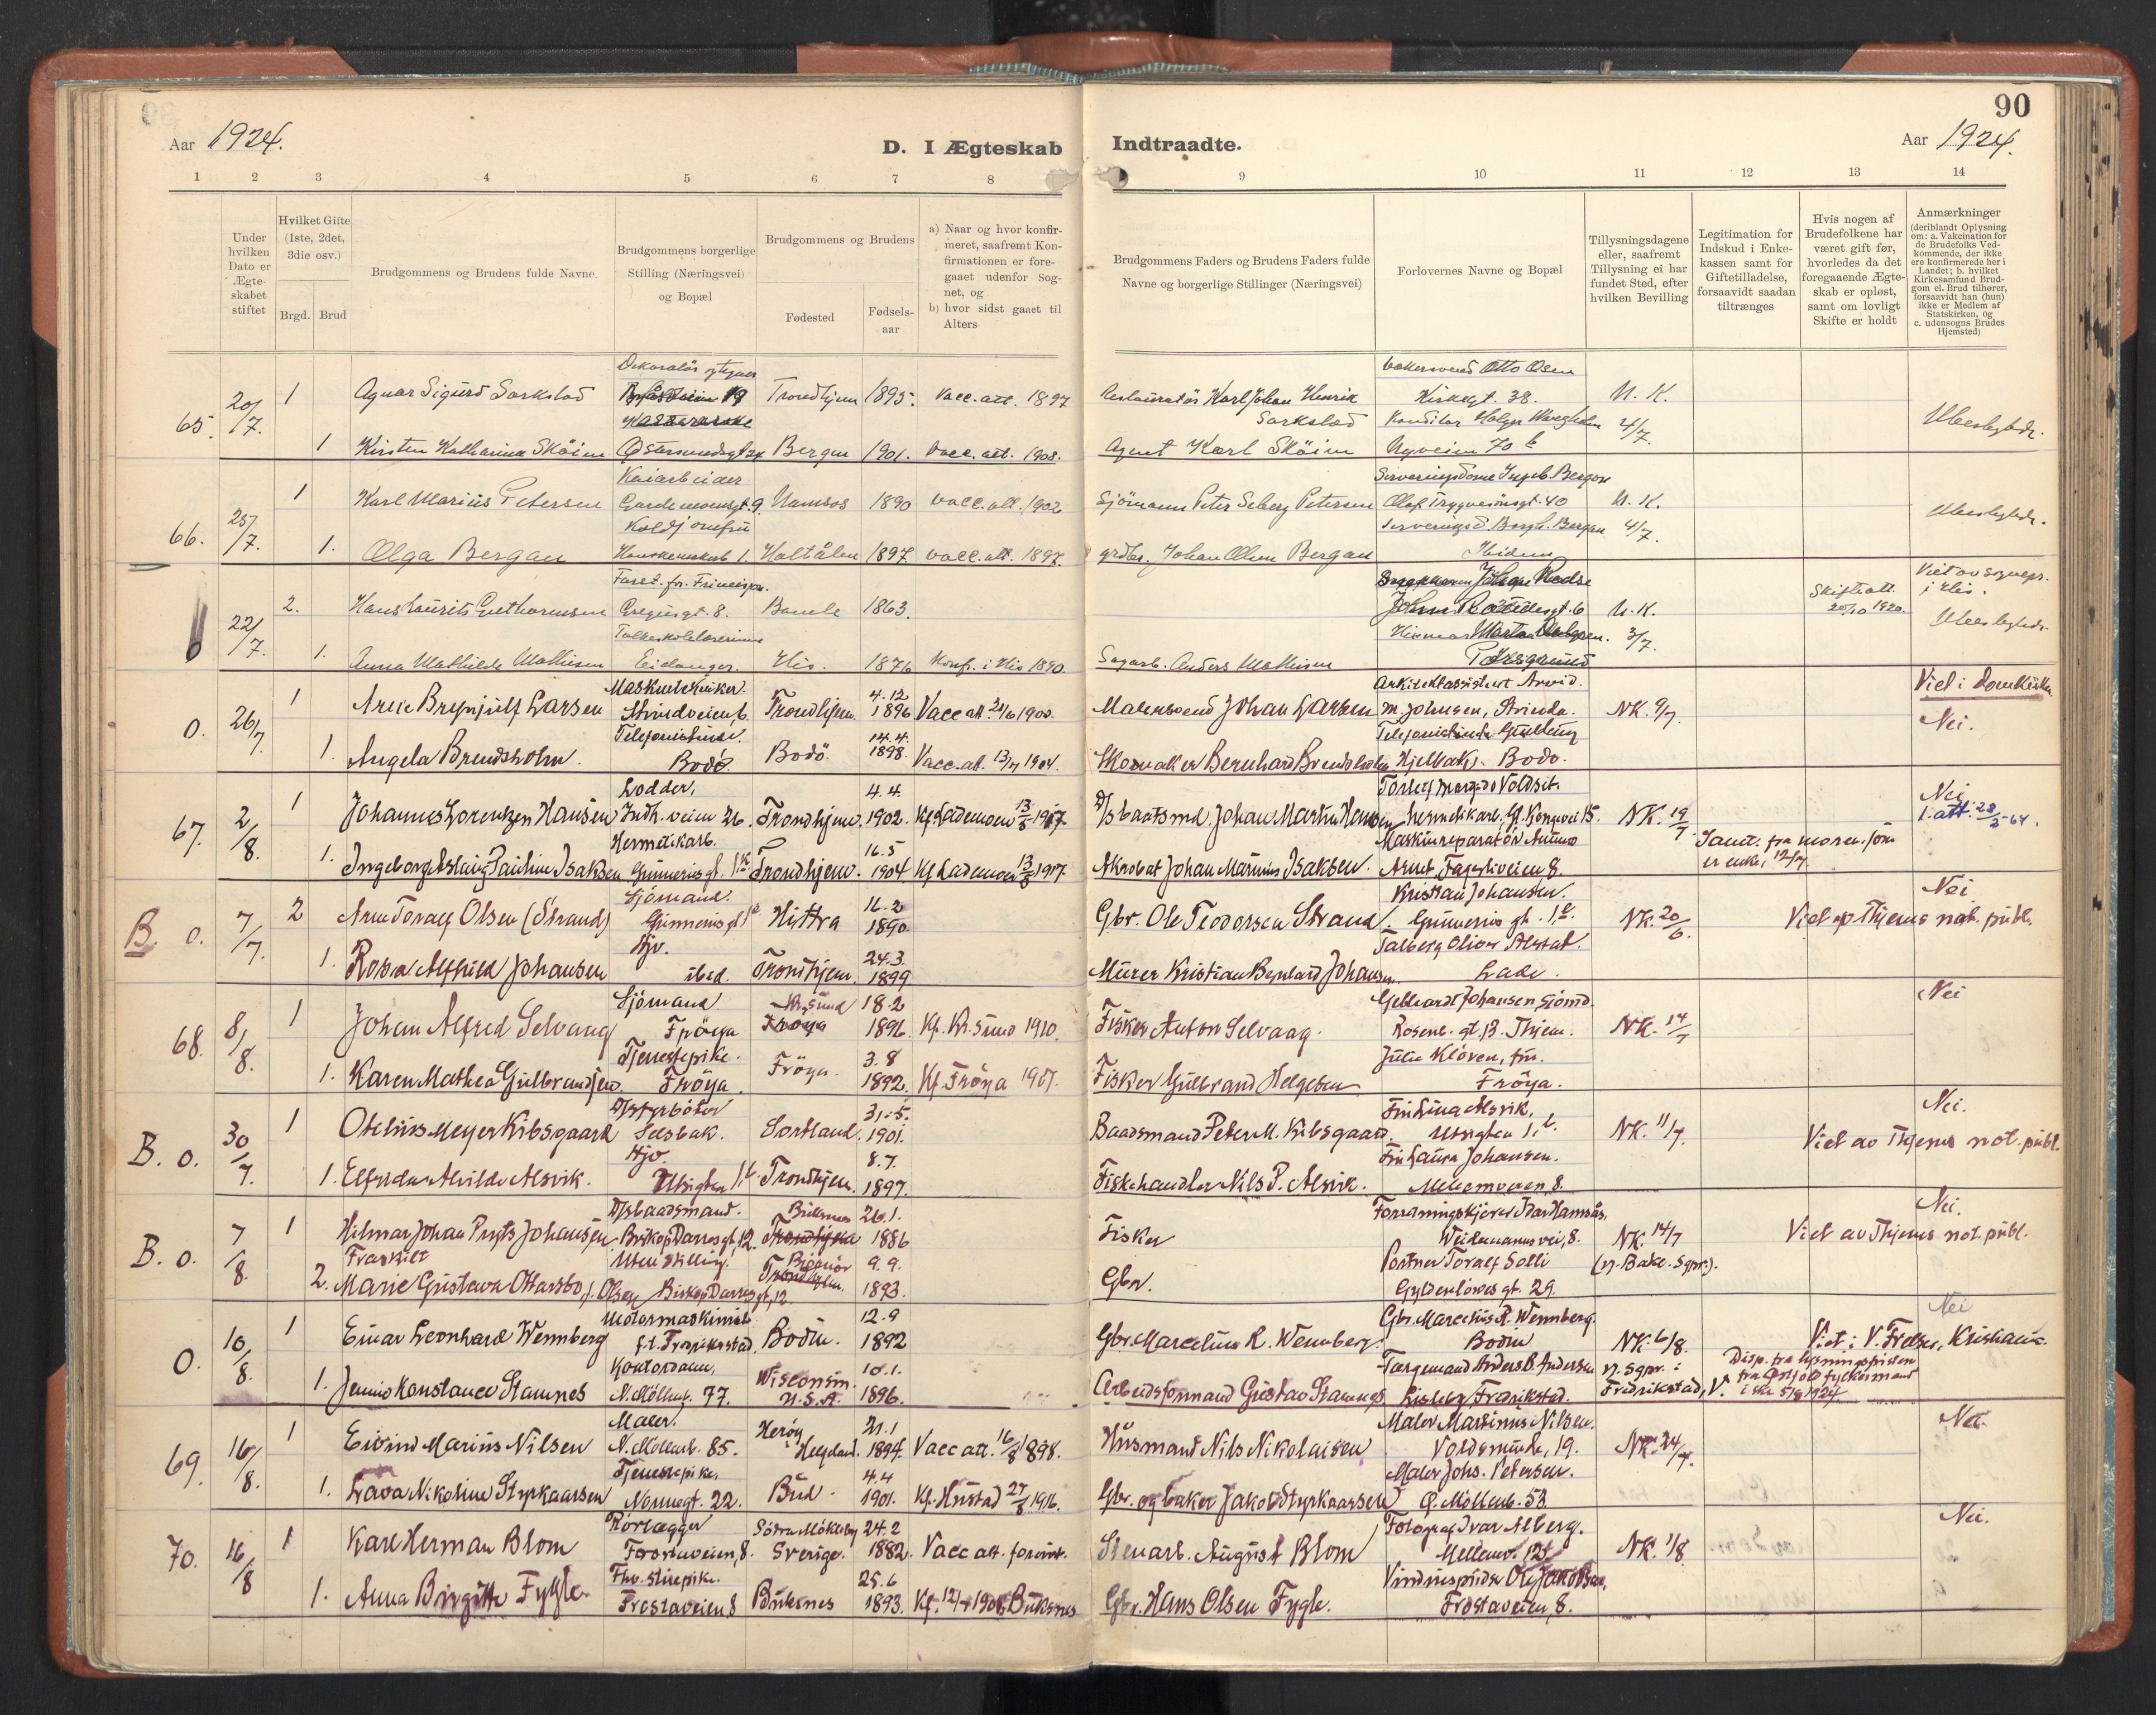 90
Aar 1924.
D. I Ægteskab
Indtraadte.
Aar 1924.
1 2 3 4 5 6 7 8 9 10 11 12 13 14
Under hvilken Dato er Ægteskabet stiftet
Hvilket Gifte (1ste, 2det, 3die osv.)
Brgd. Brud
Brudgommens og Brudens fulde Navne.
Brudgommens borgerlige Stilling (Næringsvei) og Bopæl
Brudgommens og Brudens
Fødested
Fødsels-aar
a) Naar og hvor konfir-
meret, saafremt Kon-
firmationen er fore-
gaaet udenfor Sog-
net, og
b) hvor sidst gaaet til
Alters
Brudgommens Faders og Brudens Faders fulde
Navne og borgerlige Stillinger (Næringsvei)
Forlovernes Navne og Bopæl
Tillysningsdagene
eller, saafremt
Tillysning ei har
fundet Sted, efter
hvilken Bevilling
Legitimation for
Indskud i Enke-
kassen samt for
Giftetilladelse,
forsaavidt saadan
tiltrænges
Hvis nogen af
Brudefolkene har
været gift før,
hvorledes da det
foregaaende Ægte-
skab er opløst,
samt om lovligt
Skifte er holdt
Anmærkninger
(deriblandt Oplysning
om: a. Vakcination for
de Brudefolks Ved-
kommende, der ikke
ere konfirmerede her i
Landet; b. hvilket
Kirkesamfund Brud-
gom el. Brud tilhører,
forsaavidt han (hun)
ikke er Medlem af
Statskirken, og
c. udensogns Brudes
Hjemsted)
65. 20/7. 1 Agnar Sigurd Sarkslad Trondhjem 1895. Vacc. att. 1897 Karl Johan Henrik Sarkslad Otto Olsen Kirkegt. 38. N. K. 4/7.
1 Kirsten Katharina Sköien Bergen 1901. Vacc. att. 1908. Agent Karl Sköien Nyveien 70 b Ubeslegtede.
66. 25/7. 1 Karl Marius Petersen Kaiarbeider Gardemoensgt. 9. Namsos 1890 vacc. att. 1902 Sjömann Peter Seberg Petersen Olaf Trygvesönsgt. 40 N. K. 4/7. Ubeslegtede.
1. Olga Bergan Koldjomfru Holtålen 1897. vacc. att. 1897. grdbr. Johan Olsen Bergan Ibidem
0 22/7. 2. Hans Laurits Guthormsen Gregusgt. 8. Bamle 1863. N. K. 3/7. Skifteatt. 20/10 1920. Viet av sognepr. i His. Ubeslegtede.
1. Anna Mathilde Mathisen Folkeskolelærerinne Eidanger. His. 1876 Konf. i His 1890. Sagarb. Anders Mathisen Porsgrund
0. 26/7. 1 Arne Brynjulf Larsen Strindveien 6. Trondhjem. 4.12 1896 Vacc att. 21/6 1900. Malersvend Johan Larsen Arkitektassistent Arvid M. Johnsen, Strinda. NK. 9/7. Viet i Domkirken Nei.
1. Angela Brendsholm. Telefonistinde. Bodö. Bodö. 14.4. 1898. Vacc. att. 13/7 1904. Skomaker Bernhard Brendsholm Hjelbak, Bodo.
67. 2/8. 1 Johannes Lorentzen Hansen Lodder, Indh. veien 26. Trondhjem. 4.4. 1902. Kf. Lademoen 13/5 1917. D/sbaatsmd. Johan Martin Hansen NK. 19/7. Nei 1. att. 28/2-64.
1. Ingeborg Aslaug Pauline Isaksen Hermetikarb. Gunnerus gt. 1 Trondhjem. 16.5 1904. Kf. Lademoen 13/5 1917 Akrobat Johan Marinus Isaksen. Fagerliveien 8. Samt. fra moren, som er enke, 12/7.
B 0. 7/7. 2 Arne Toralf Olsen (Strand) Sjömand. Gunnerus gt. 1e Hittra 16.2 1890. Gbr. Ole Teodorsen Strand. Kristian Johansen. Gunnerus gt. 1e. NK. 20/6. Nei. Viet af Thjems not. publ.
1. Rosa Alfhild Johansen Hjv. ibid. Trondhjem. 24.3. 1899 Murer Kristian Bernhard Johansen. Talberg Oliver Alstad. Lade.
68. 8/8. 1 Johan Alfred Selvaag Sjömand. Fröya Kr.sund 18.2 1896. Kf. Kr.sund 1910. Fisker Anton Selvaag. Gebhardt Johansen sjömd. Rosenb. gt. 13. Thjem. NK. 14/7 Nei
1. Karen Mathea Gulbrandsen Tjenestepike. Fröya. Fröya. 3.8 1892. Kf. Fröya 1907. Fisker Gulbrand Helgesen Julie Klöven, fru. Fröya.
B. 0. 30/7. 1 Otelius Meyer Kibsgaard D/styrböter Selsbak. Sortland. 31.5. 1901. Baadsmand Peter M. Kibsgaard. Fru Lina Alsvik, Utsigten 1.b. NK. 11/7. Nei. Viet av Thjems not. publ.
1. Elfrida Alvilde Alsvik. Hjv. Utsigten 1.b. Trondhjem. 8.7. 1897. Fiskehandler Nils P. Alsvik. Fru Laura Johansen. Mellemveien, 8.
B. 0. 7/8. 1 Hilmar Johan Pryts Johansen D/sbaadsmand. Biskop Darres gt. 12. Buksnes 26.1. 1886 Fisker Forretningskjører Ivar Hamsås. Weidemannsvei, 8. NK. 14/7 (v. Bakl. Sgpr.). Nei. Viet av Thjems not. publ.
2. Fraskilt Marie Gustava Ottarsbo, f. Olsen Uten stilling. Biskop Darres gt. 12 Bjørnör 9.9. 1893. Gbr. Portner Toralf Solli Gyldenlöwes gt. 29.
0. 10/8. 1 Einar Leonhard Wennberg Motormaskinist f.t. Fredrikstad Bodin. 12.9 1892 Gbr. Marcelius R. Wennberg. Gbr. Marcelius R. Wennberg. Bodin NK. 6/8. Nei Viet i V. Frelser, Kristiania.
1. Jennie Konstance Stamnes Kontordame, N. Möllenb. 77. Wisconsin. U.S.A. 10.1. 1896. Arbeidsformand Gustav Stamnes Anders B. Andersen Fredrikstad. v. sgpr. i Fredrikstad, V. Disp. fra lysningsfristen fra Østfold fylkesmand i skr. 5/8 1924.
69. 16/8. 1 Eivind Marius Nilsen Maler. N. Möllenb. 85. Heröy Helgeland. 21.1 1894. Vacc att. 16/8 1898. Husmand Nils Nikolaisen Maler Martinus Nilsen. Voldsminde, 19. NK. 24/7. Nei.
1. Lava Nikoline Styrkaarsen Tjenestepike. Nonnegt. 22. Bud. 4.4 1901. Kf. Hustad 27/8 1916. Gbr. og baker Jakob Styrkaarsen Maler Johs. Petersen. Ø. Möllenb. 53.
70. 16/8 1 Karl Herman Blom Rørlægger Frostaveien, 8. Södra Möckleby Sverige. 24.2 1882. Vacc att. forevist. Stenarb. August Blom Fotograf Ivar Alberg. Mellemv. 12. NK. 1/8 Nei.
1. Anna Birgitte Fygle. Frostaveien 8 Buksnes 25.6 1893. Kf. 12/7 1908, Buksnes Gbr. Hans Olsen Fygle. Vinduspudser Ole Jakobsen, Frostaveien, 8.